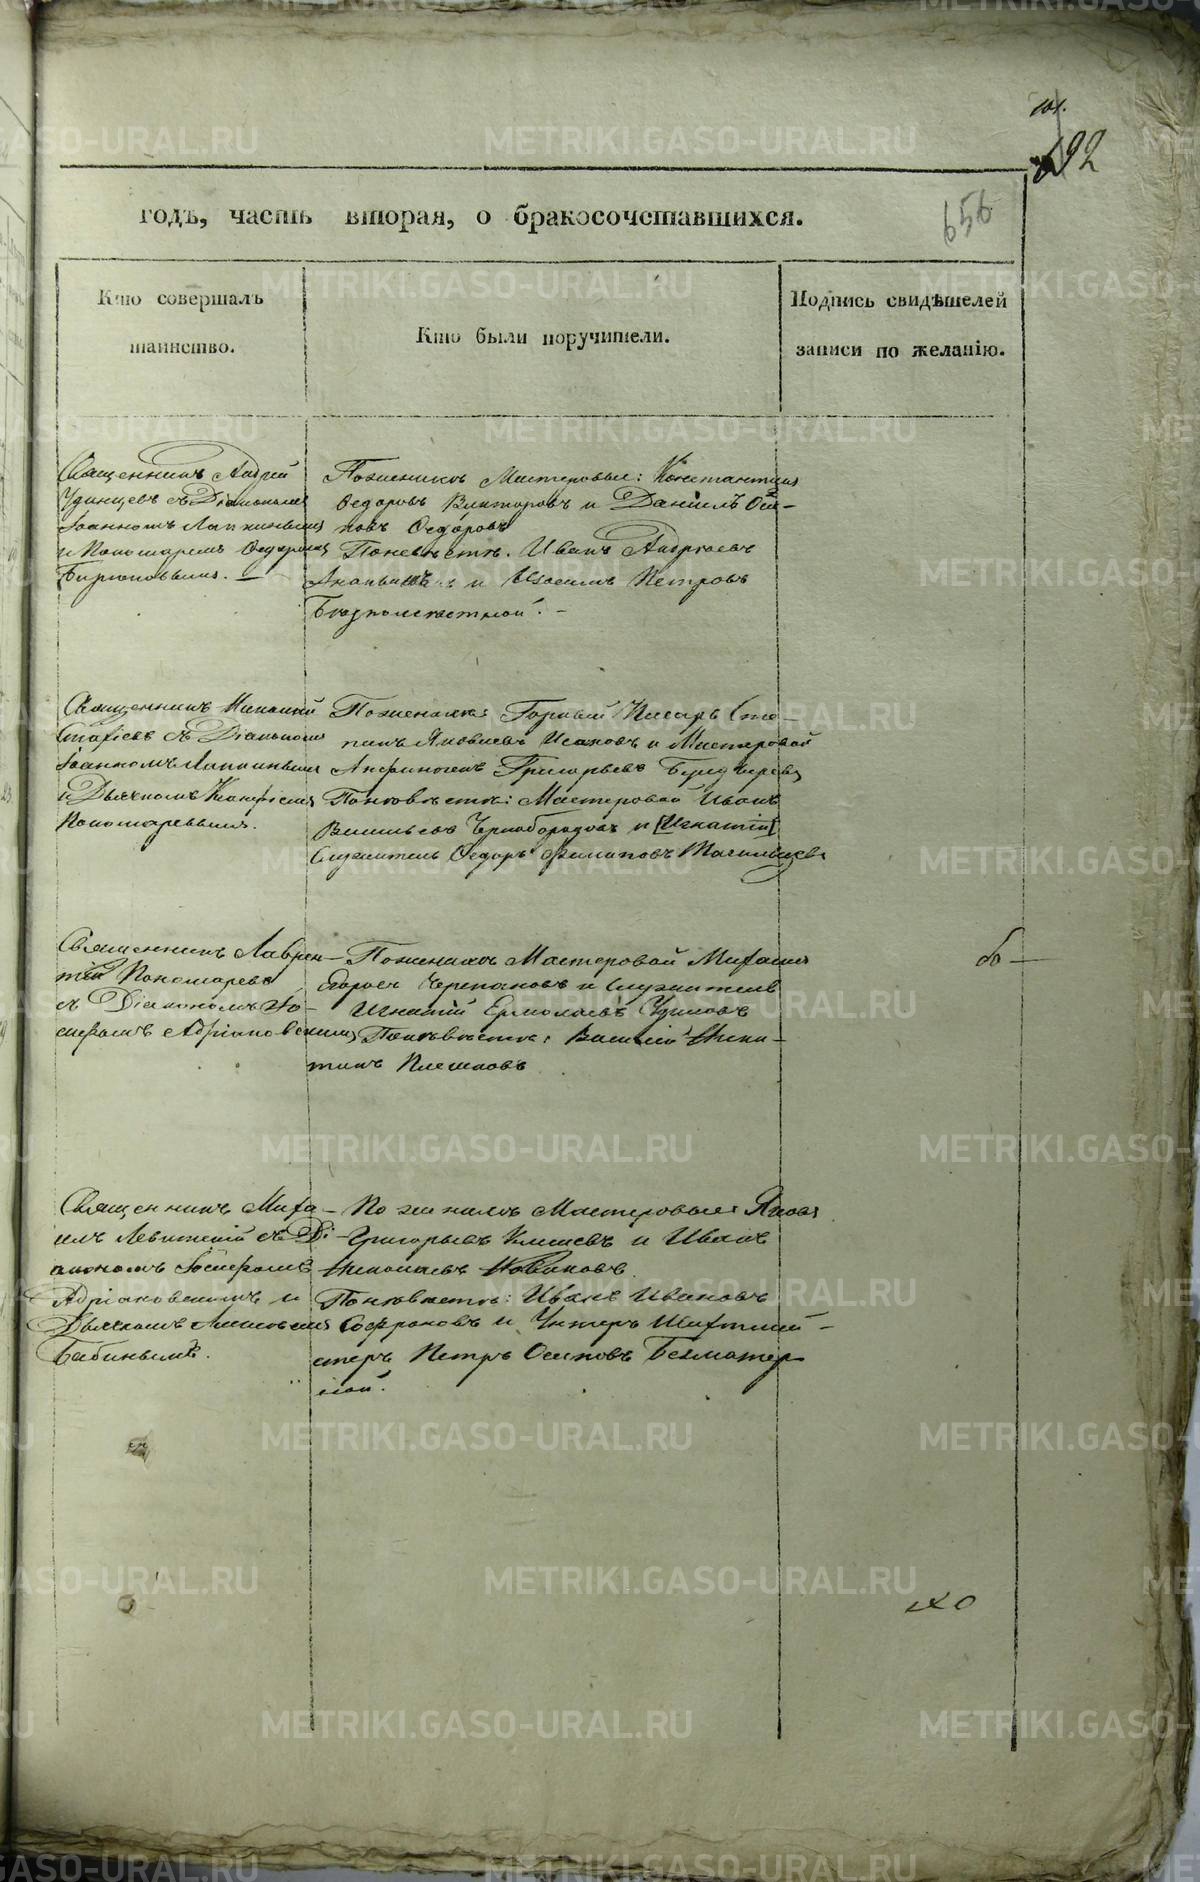 101.
692
656
годъ, часть вторая, о бракосочетавшихся.
Кто совершалъ
таинство.
Кто были поручители.
Подпись свидѣтелей
записи по желанію.
Священникъ Андрей
Удинцевъ съ Діакономъ
Іоанномъ Лапкинымъ
и Пономаремъ Федоромъ
Бирюковымъ. —
Пожених Мастеровые: Константинъ
Федоровъ Викторовъ и Даніилъ Оси-
повъ Федоровъ
Поневѣстѣ. Иванъ Андреевъ
и Петровъ
Священникъ Николай
съ Діакономъ
Іоанномъ Лапкинымъ
и Дьячкомъ
Пономаревымъ.
Поженихѣ: Горный Писарь Сте-
панъ Яковлевъ Исаковъ и Мастеровой
Анфиногенъ Григорьевъ
Поневѣстѣ: Мастеровой Иванъ
Васильевъ Чернобородовъ и [Игнатій]
Служитель Федоръ Филиповъ Тагильцевъ
Священникъ Лаврен-
тій Пономаревъ
съ Діакономъ Іо-
сифомъ Адріановскимъ
Поженихѣ Мастеровой Михаилъ
Егоровъ Черепановъ и Служитель
Игнатій Ермолаевъ
Поневѣстѣ: Василій Ники-
тинъ Плешковъ
Священникъ Миха-
илъ Левитскій съ Ді-
акономъ Іосифомъ
Адріановскимъ и
Дьячкомъ Алексѣемъ
Бабинымъ.
По женихѣ Мастеровые: Яковъ
Григорьевъ и Иванъ
Николаевъ Новаковъ
Поневѣстѣ: Иванъ Ивановъ
Софроновъ и Унтеръ Шихтмей-
стеръ Петръ Осиповъ Безматер-
ной.
METRIKI.GASO-URAL.RU